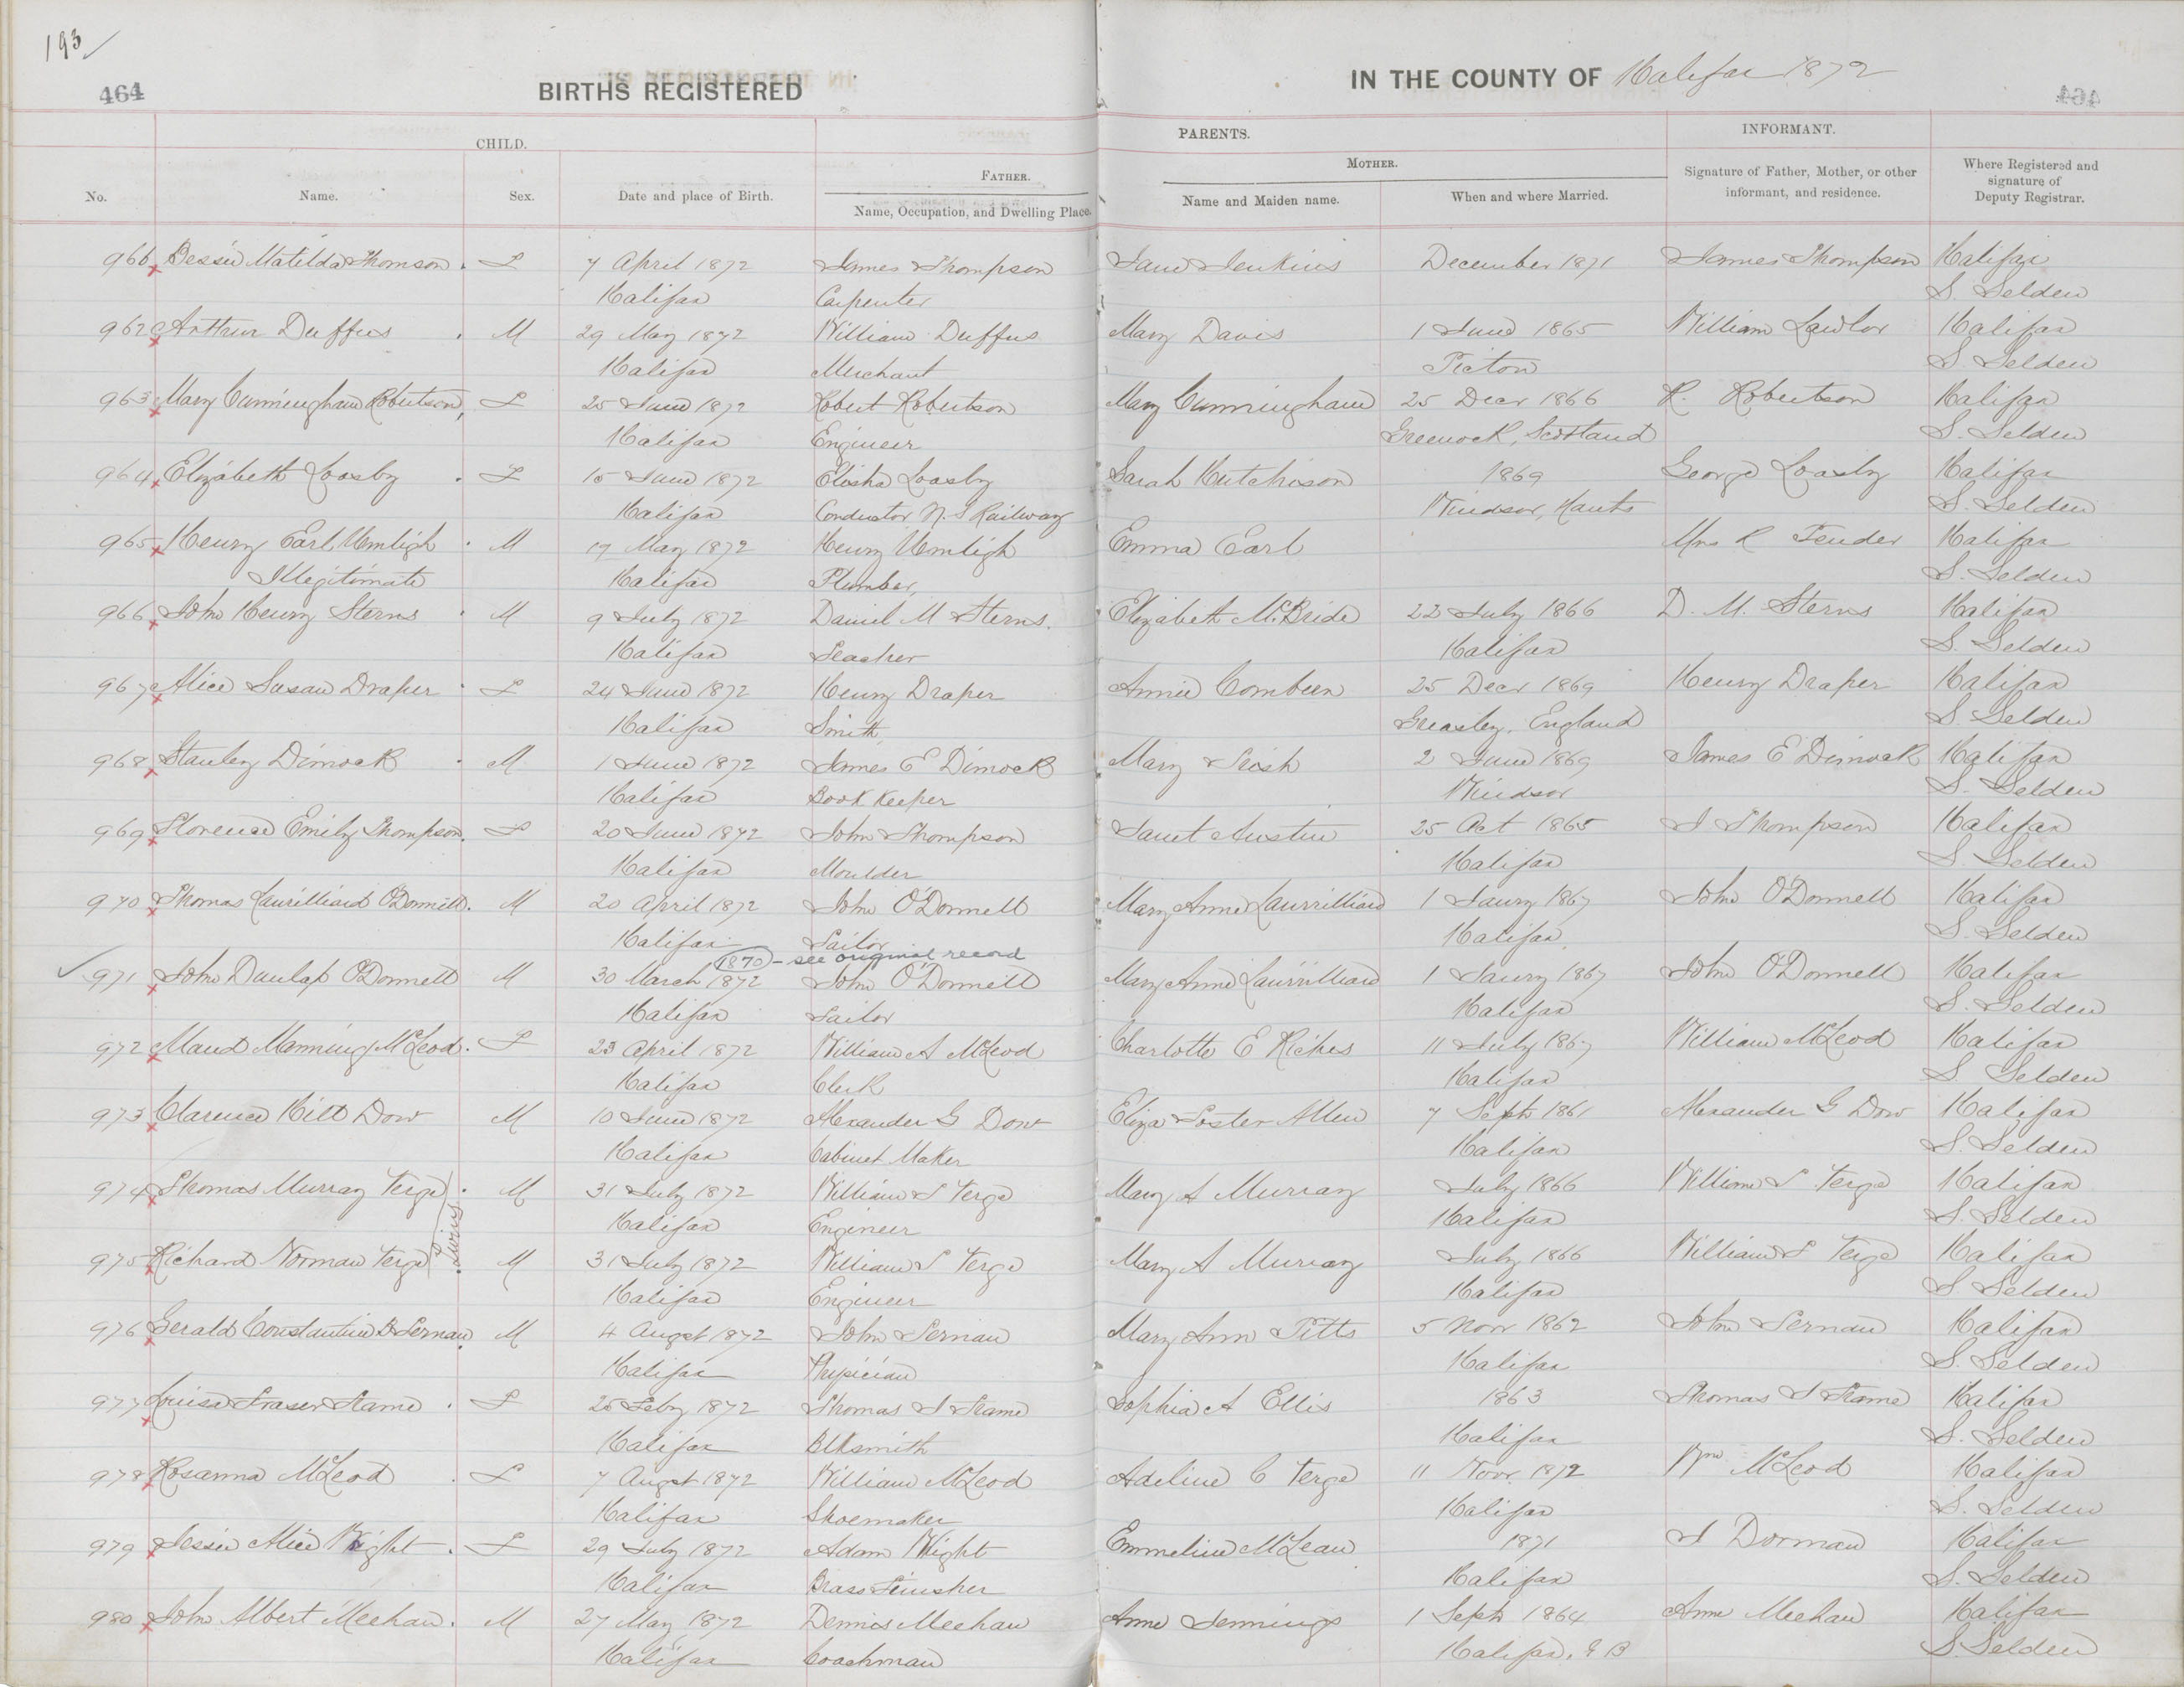 193
464
BIRTHS REGISTERED
IN THE COUNTY OF Halifax 1872
CHILD.
PARENTS.
INFORMANT.
FATHER.
MOTHER.
No.
Name.
Sex.
Date and place of Birth.
Name, Occupation, and Dwelling Place.
Name and Maiden name.
When and where Married.
Signature of Father, Mother, or other informant, and residence.
Where Registered and signature of Deputy Registrar.
966 Bessie Matilda Thomson F 7 April 1872 James Thompson Jane Jenkins December 1871 James Thompson Halifax
Halifax Carpenter S. Selden
962 Arthur Duffus M 29 May 1872 William Duffus Mary Davis 1 June 1865 William Lawlor Halifax
Halifax Merchant Picton S. Selden
963 Mary Cunningham Robertson F 25 June 1872 Robert Robertson Mary Cunningham 25 Decr 1866 R. Robertson Halifax
Halifax Engineer Greenock, Scotland S. Selden
964 Elizabeth Loasby F 15 June 1872 Elisha Loasby Sarah Hutchison 1869 George Loasby Halifax
Halifax Conductor N. S Railway Windsor, Hants S. Selden
965 Henry Earl Umligh M 17 May 1872 Henry Umligh Emma Earl Mrs R Fender Halifax
Illegitimate Halifax Plumber S. Selden
966 John Henry Sterns M 9 July 1872 Daniel M Sterns. Elizabeth McBride 22 July 1866 D. M. Sterns Halifax
Halifax Teacher Halifax S. Selden
967 Alice Susan Draper F 24 June 1872 Henry Draper Annie Combeen 25 Decr 1869 Henry Draper Halifax
Halifax Smith Greasley, England S Selden
968 Stanley Dimock M 1 June 1872 James E Dimock Mary 2 June 1869 James E Dimock Halifax
Halifax Book Keeper Windsor S. Selden
969 Florence Emily Thompson F 20 June 1872 John Thompson Janet Austin 25 Oct 1865 J Thompson Halifax
Halifax Moulder Halifax S. Selden
970 Thomas Laurilliard O'Donnell M 20 April 1872 John O'Donnell Mary Anne Laurrilliard 1 Jany 1867 John O'Donnell Halifax
Halifax Sailor Halifax S. Selden
1870 - see original record
971 John Dunlap O'Donnell M 30 March 1872 John O'Donnell Mary Anne Laurrilliard 1 Jany 1867 John O'Donnell Halifax
Halifax Sailor Halifax S. Selden
972 Maud Manning McLeod F 23 April 1872 William A McLeod Charlotte E Riches 11 July 1867 William McLeod Halifax
Halifax Clerk Halifax S Selden
973 Clarence Hill Dow M 10 June 1872 Alexander G Dow Eliza Foster Allen 7 Sept 1861 Alexander G Dow Halifax
Halifax Cabinet Maker Halifax S. Selden
974 Thomas Murray Terge M 31 July 1872 William S Terge Mary A Murray July 1866 William S Terge Halifax
Twins
Halifax Engineer Halifax S. Selden
975 Richard Norman Terge M 31 July 1872 William S Terge Mary A Murray July 1866 William S Terge Halifax
Halifax Engineer Halifax S. Selden
976 Gerald Constantine D Sernau M 4 Augst 1872 John Sernau Mary Ann Pitts 5 Novr 1862 John Sernau Halifax
Halifax Physician Halifax S. Selden
977 Louisa Fraser Frame F 25 Feby 1872 Thomas J Frame Sophia A Ellis 1863 Thomas J Frame Halifax
Halifax Blksmith Halifax S. Selden
978 Rosanna McLeod F 7 Augst 1872 William McLeod Adeline C Terge 11 Novr 1872 Wm McLeod Halifax
Halifax Shoemaker Halifax S. Selden
979 Jessie Alice Wight F 29 July 1872 Adam Wight Emmeline McLean 1871 J Dorman Halifax
Halifax Brass Finisher Halifax S. Selden
980 John Albert Meehan M 27 May 1872 Dennis Meehan Anne Jennings 1 Sept 1864 Anne Meehan Halifax
Halifax Coachman Halifax, S. Selden